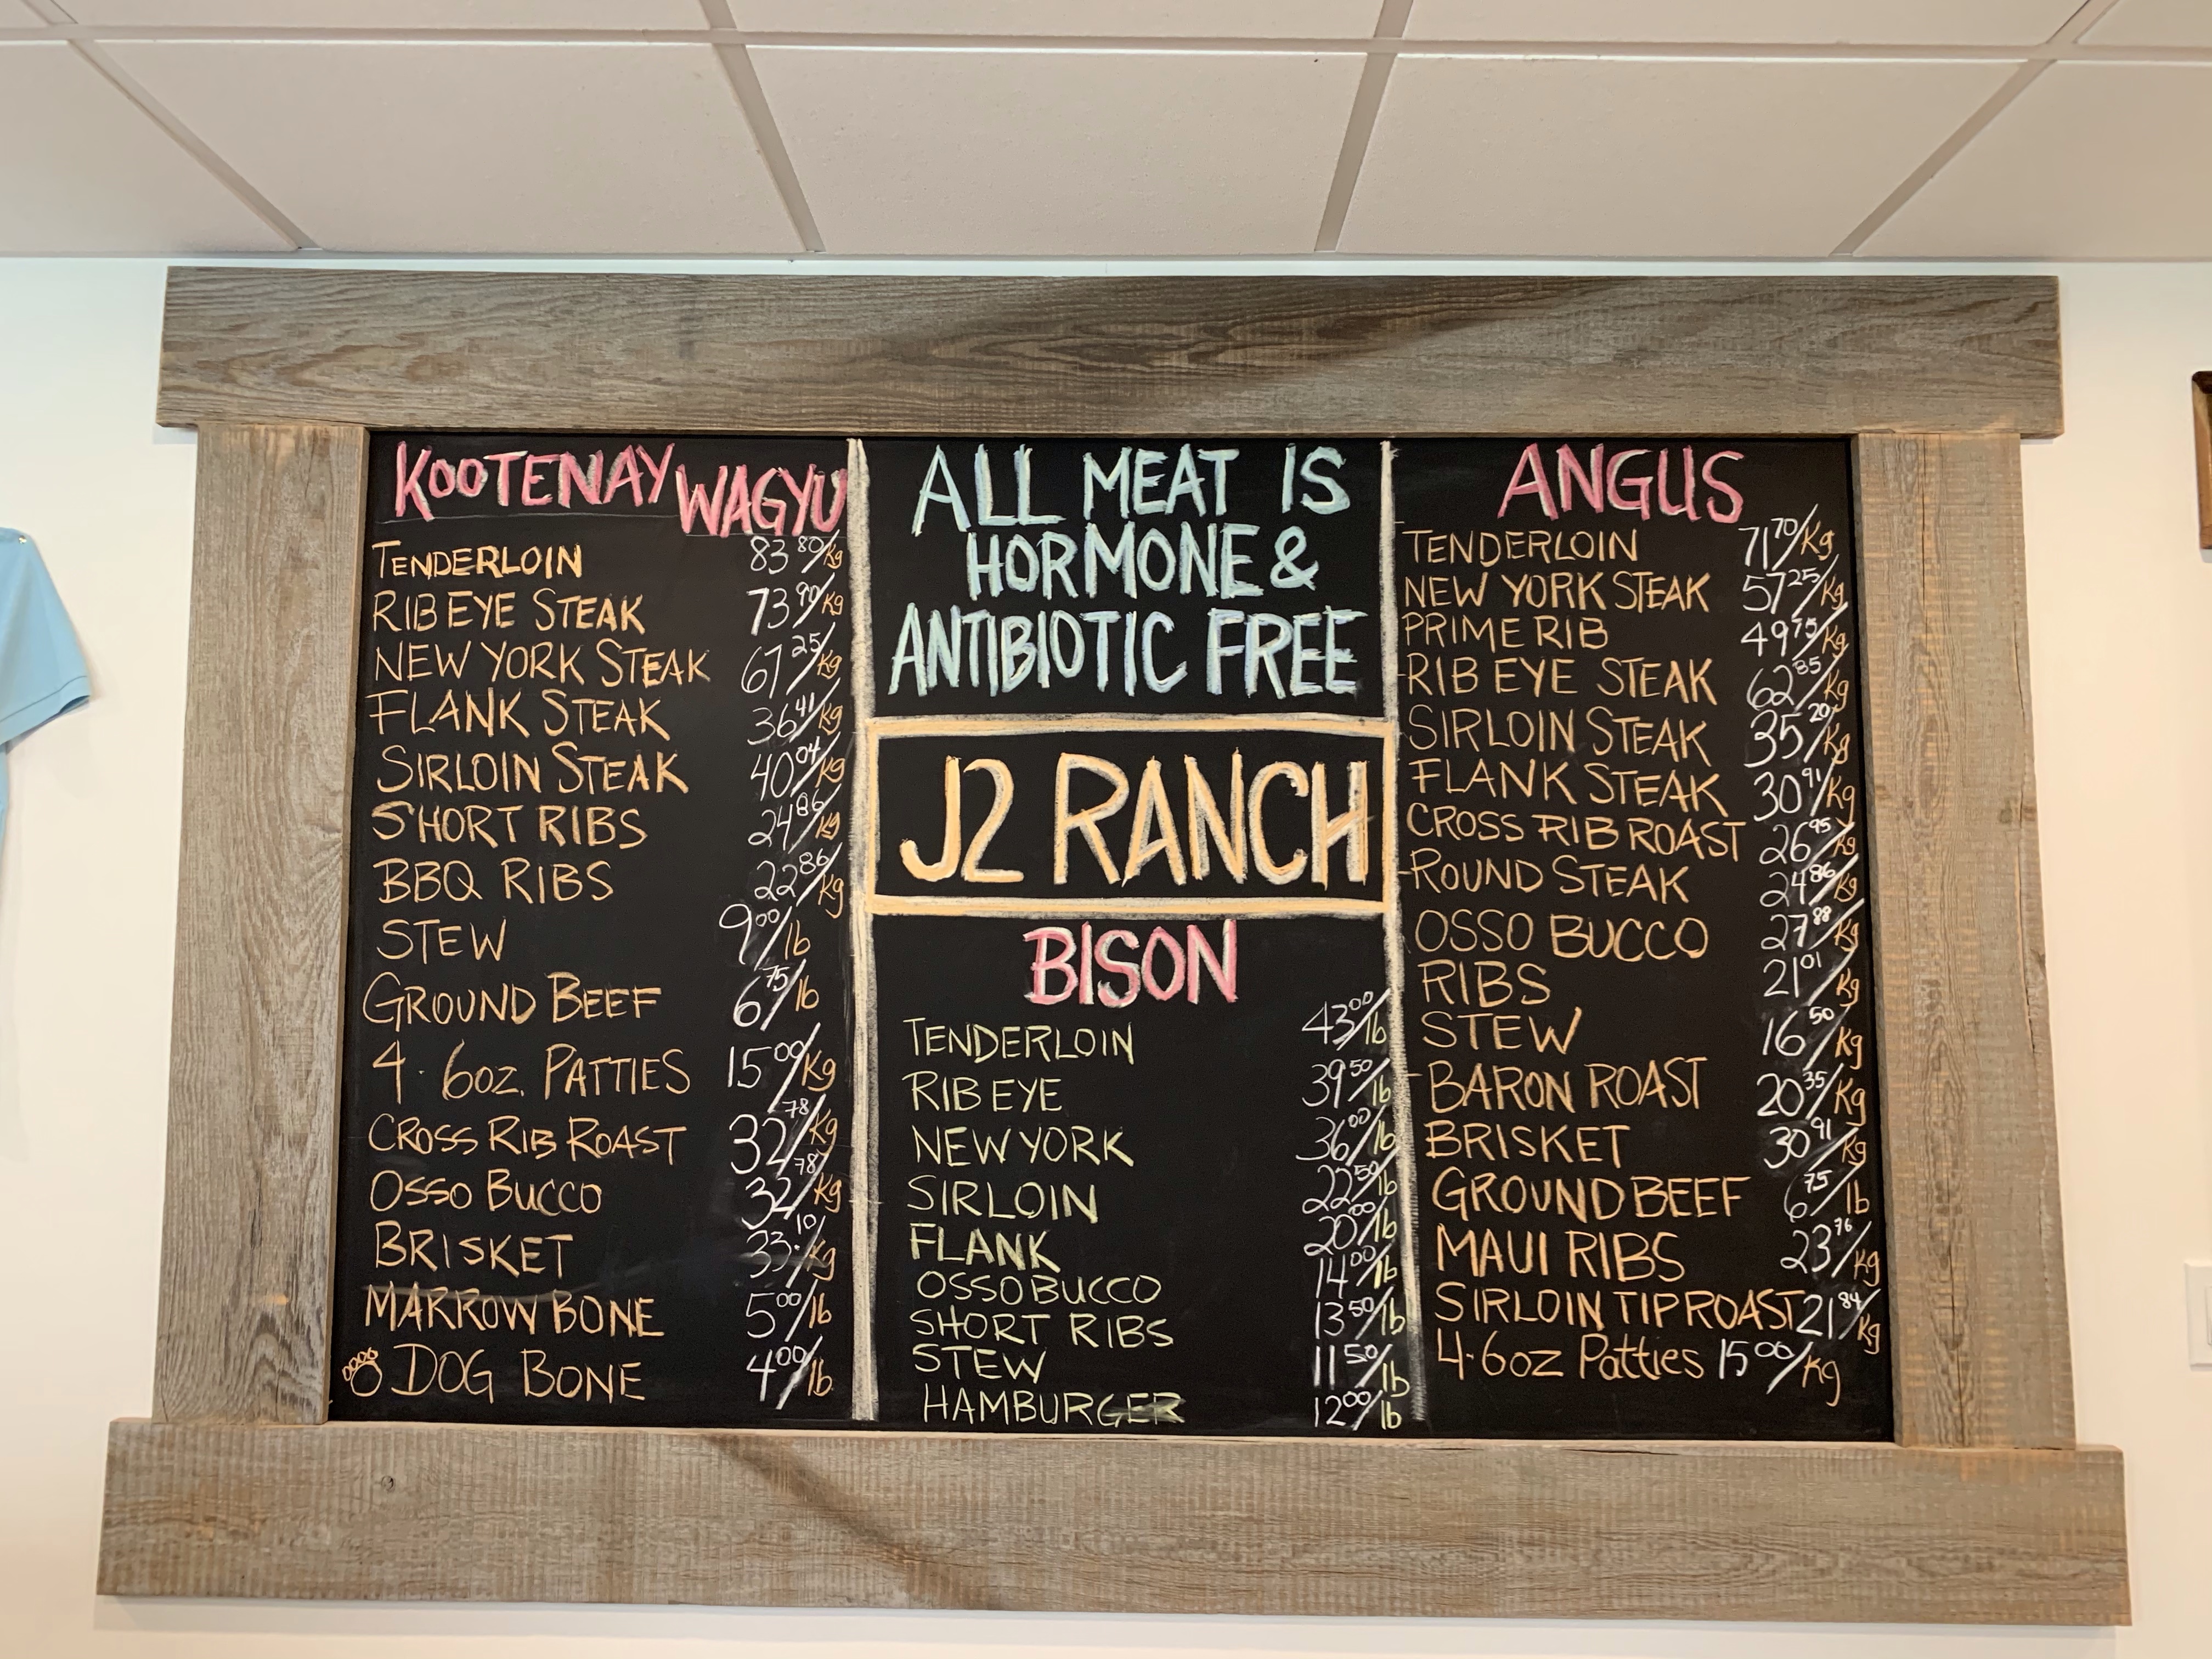 KOOTENAY WAGYU
TENDERLOIN 83 80/Kg
RIB EYE STEAK 73 90/Kg
NEW YORK STEAK 67 25/Kg
FLANK STEAK 36 41/Kg
SIRLOIN STEAK 40 04/Kg
SHORT RIBS 24 86/Kg
BBQ RIBS 22 86/Kg
STEW 9 00/lb
GROUND BEEF 6 75/lb
4 · 6oz. PATTIES 15 00/Kg
CROSS RIB ROAST 32 78/Kg
OSSO BUCCO 32 78/Kg
BRISKET 33 10/Kg
MARROW BONE 5 00/lb
DOG BONE 4 00/lb
ALL MEAT IS
HORMONE &
ANTIBIOTIC FREE
J2 RANCH
BISON
TENDERLOIN 43 00/lb
RIB EYE 39 50/lb
NEW YORK 36 00/lb
SIRLOIN 22 50/lb
FLANK 20 00/lb
OSSO BUCCO 14 00/lb
SHORT RIBS 13 50/lb
STEW 11 50/lb
HAMBURGER 12 00/lb
ANGUS
TENDERLOIN 71 70/Kg
NEW YORK STEAK 57 25/Kg
PRIME RIB 49 75/Kg
RIB EYE STEAK 62 85/Kg
SIRLOIN STEAK 35 20/Kg
FLANK STEAK 30 91/Kg
CROSS RIB ROAST 26 95/Kg
ROUND STEAK 24 86/Kg
OSSO BUCCO 27 88/Kg
RIBS 21 01/Kg
STEW 16 50/Kg
BARON ROAST 20 35/Kg
BRISKET 30 91/Kg
GROUND BEEF 6 75/lb
MAUI RIBS 23 76/Kg
SIRLOIN TIP ROAST 21 84/Kg
4·6oz Patties 15 00/Kg